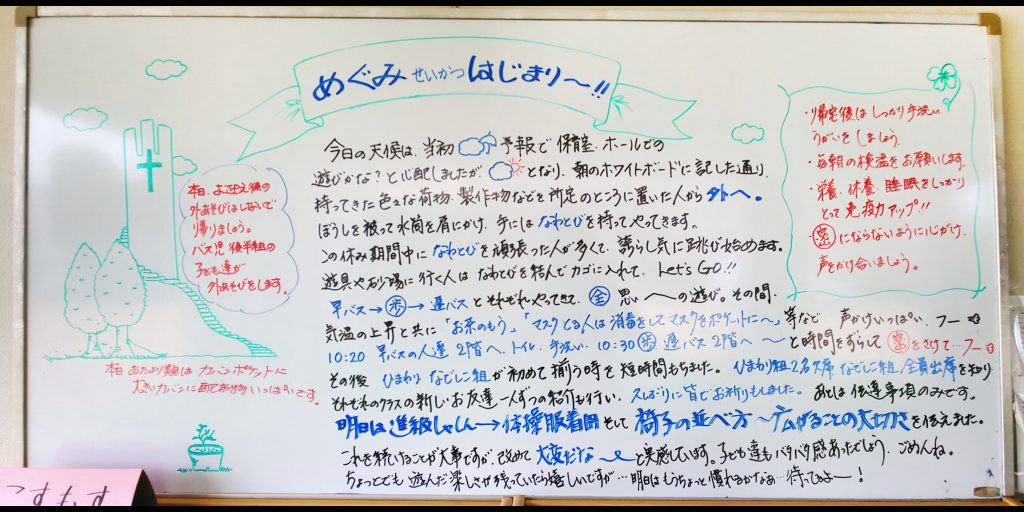 めぐみ せいかつ はじまり〜!!
今日の天候は、当初 予報で 保育室・ホールでの
遊びかな?と心配しましたが となり、朝のホワイトボードに記した通り、
持ってきた色々な荷物、製作物などを所定のところに置いた人から 外へ。
ぼうしを被って水筒を肩にかけ、手には なわとびを持って やってきます。
この休み期間中に なわとびを頑張った人が多くて、誇らし気に 跳び始めます。
遊具や砂場に行く人は なわとびを結んで カゴに入れて、Let's GO!!
早バス→歩→遅バス とそれぞれ やってきて、全 思い〜の遊び。その間、
気温の上昇と共に「お茶のもう」「マスクとる人は 消毒をして マスクをポケットに〜」等など 声かけいっぱい、フー
10:20 早バスの人達 2階へ、トイレ、手洗い 10:30 歩 遅バス 2階へ 〜 と時間をずらして 密をさけて…フー
その後 ひまわり なでしこ組が初めて揃う時を短時間もちました。ひまわり組2名欠席 なでしこ組 全員出席を知り
それぞれのクラスの新しいお友達一人ずつの紹介も行い、久しぶりに皆でお祈りもしました。あとは 伝達事項のみです。
明日は進級しゃしん→体操服着用 そして 椅子の並べ方 〜広がることの大切さを伝えました。
これを続けることが大事ですが、改めて 大変だな〜と実感しています。子ども達もバタバタ感あったでしょう、ごめんね。
ちょっとでも 遊んだ楽しさが残っていたら嬉しいですが… 明日はもうちょっと慣れるかなあ…待ってるよー!
本日、お迎え後の
外あそびはしないで
帰りましょう。
バス児 後半組の
子ども達が
外あそびをします。
本日 おたより類は カバンポケットに
大きいカバンに 配布物 いっぱいです。
・帰宅後は しっかり手洗い
うがいを しましょう。
・毎朝の検温を お願いします。
・栄養、休養、睡眠をしっかり
とって 免疫力アップ!!
・密にならないように心がけ、
声をかけ合いましょう。
こすもす